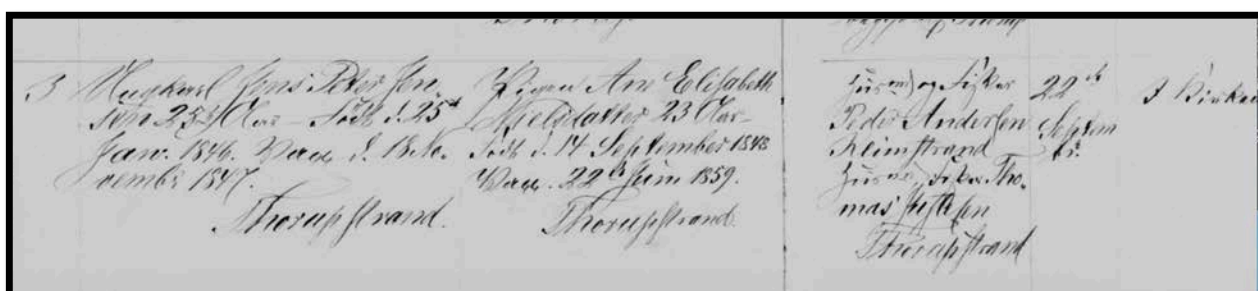 3 Ungkarl Jens Peter Jen-
sen 25½ Aar – Födt d. 25de
Janr. 1846. Vacc d. 18 No-
vembr 1847.
Thorupstrand.
Pigen Ane Elisabeth
Nielsdatter 23 Aar –
Födt d. 14 September 1848
Vacc. 22de Juni 1859.
Thorupstrand.
Huusmd og Fisker
Peder Andersen
Klimstrand
Huusmd Fisker Tho-
mas
Thorupstrand
22de
Septem
br.
I Kirken